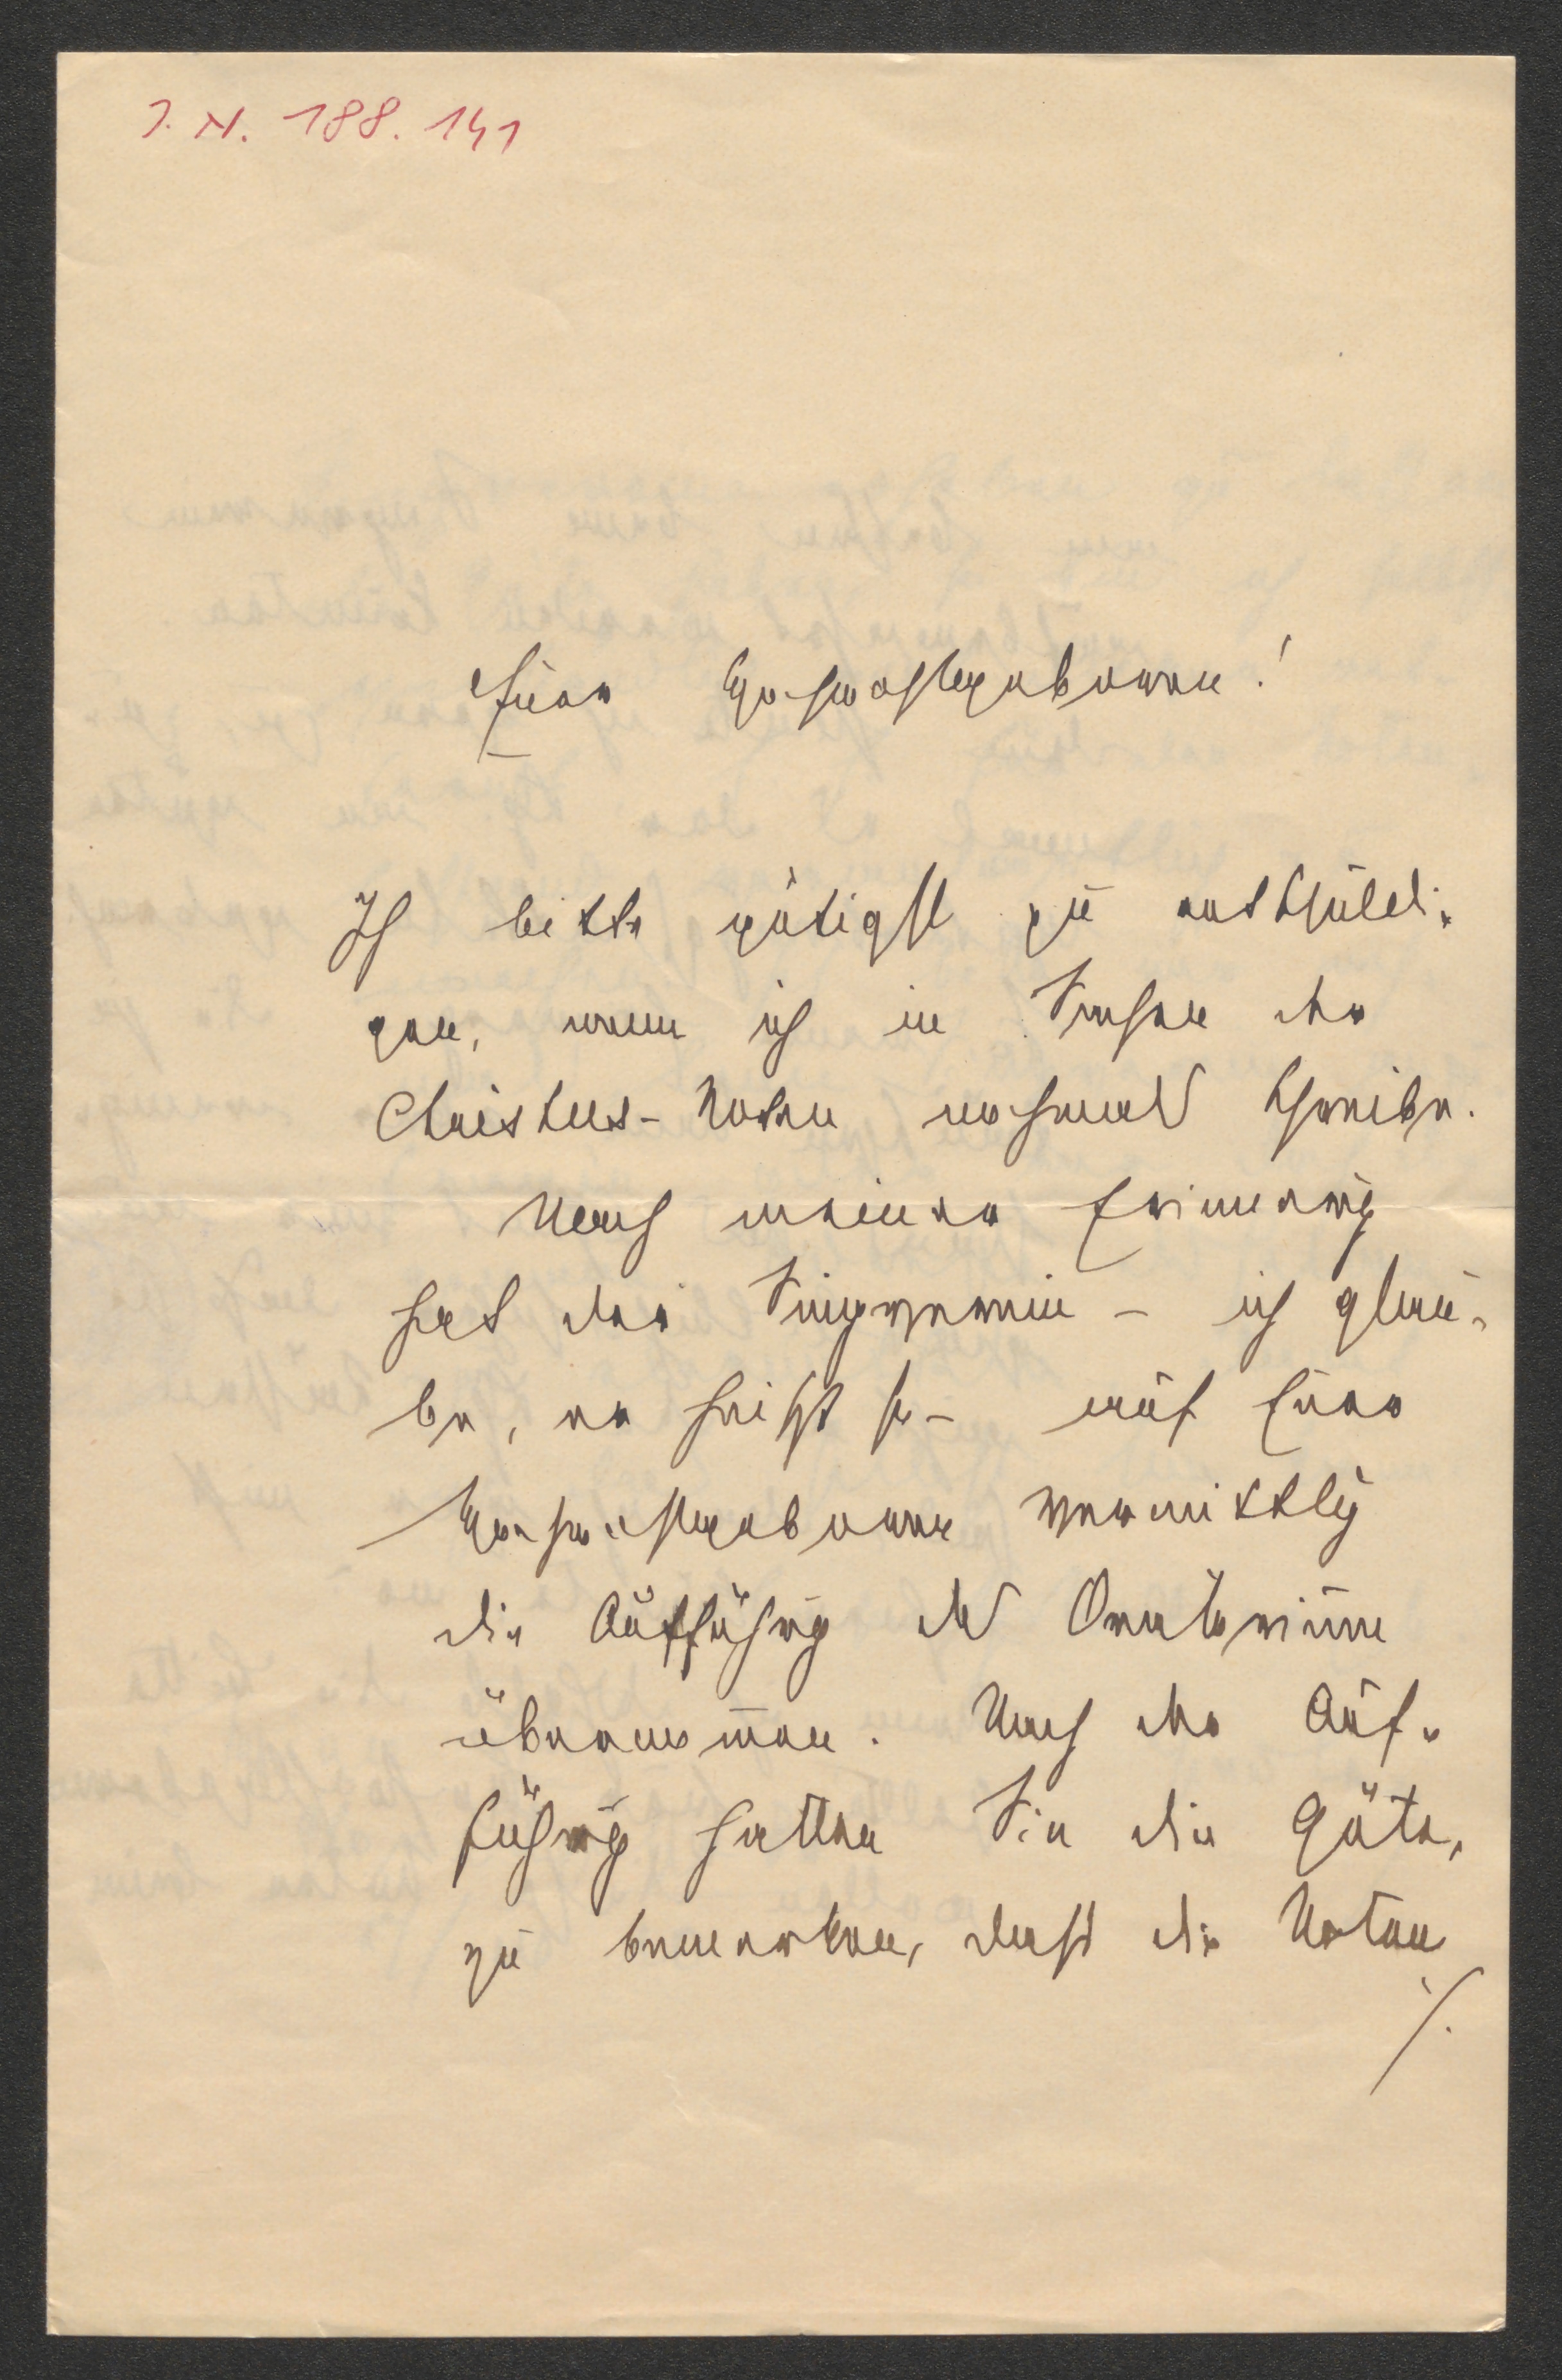 J. N. 188.141
Euer Hochwohlgeboren!
Ich bitte gütigst zu entschuldi-
gen, wenn ich in Sachen der
Christus-Noten nochmals schreibe.
Nach meiner Erinnerung
hat der Singverein – ich glau-
be, er heißt so – auf Euer
Hochwohlgeboren
die Aufführung des Oratoriums
übernommen. Nach der Auf-
führung hatten Sie die Güte,
zu bemerken, dass die Noten
./.